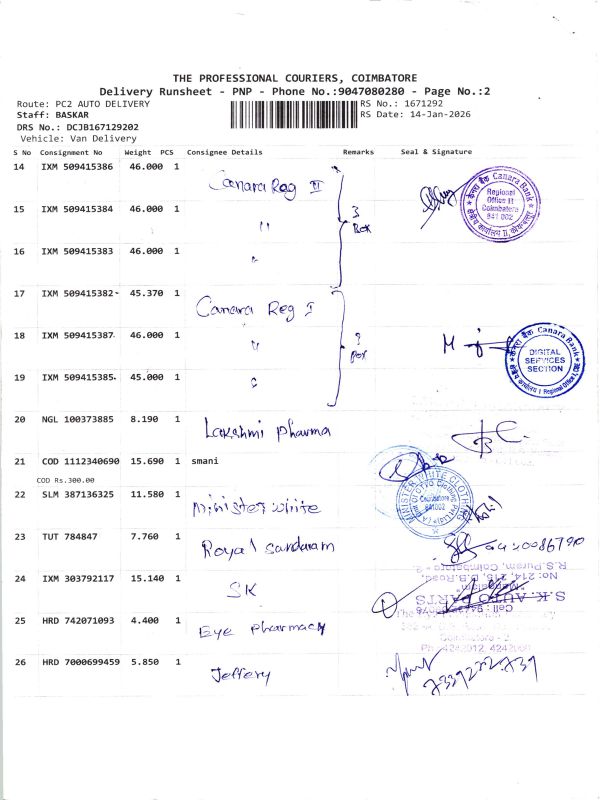 THE PROFESSIONAL COURIERS, COIMBATORE
Delivery Runsheet - PNP - Phone No.:9047080280 - Page No.:2
Route: PC2 AUTO DELIVERY RS No.: 1671292
Staff: BASKAR RS Date: 14-Jan-2026
DRS No.: DCJB167129202
Vehicle: Van Delivery
S No Consignment No Weight PCS Consignee Details Remarks Seal & Signature
14 IXM 509415386 46.000 1 Canara Reg II
15 IXM 509415384 46.000 1 " 3 Box
16 IXM 509415383 46.000 1 "
Canara Bank
Regional Office II
Coimbatore
641 002
17 IXM 509415382 45.370 1 Canara Reg I
18 IXM 509415387 46.000 1 "
19 IXM 509415385 45.000 1 "
Canara Bank
DIGITAL
SERVICES
SECTION
Regional Office I, CBE
20 NGL 100373885 8.190 1 Lakshmi pharma
21 COD 1112340690 15.690 1 smani
COD Rs.300.00
22 SLM 387136325 11.580 1 Minister white
MINISTER WHITE CLOTHING
Coimbatore
641002
23 TUT 784847 7.760 1 Royal sandaram
24 IXM 303792117 15.140 1 SK
S.K. AUTO PARTS
R.S.Puram, Coimbatore - 2
25 HRD 742071093 4.400 1 Eye pharmacy
26 HRD 7000699459 5.850 1 Jeffery